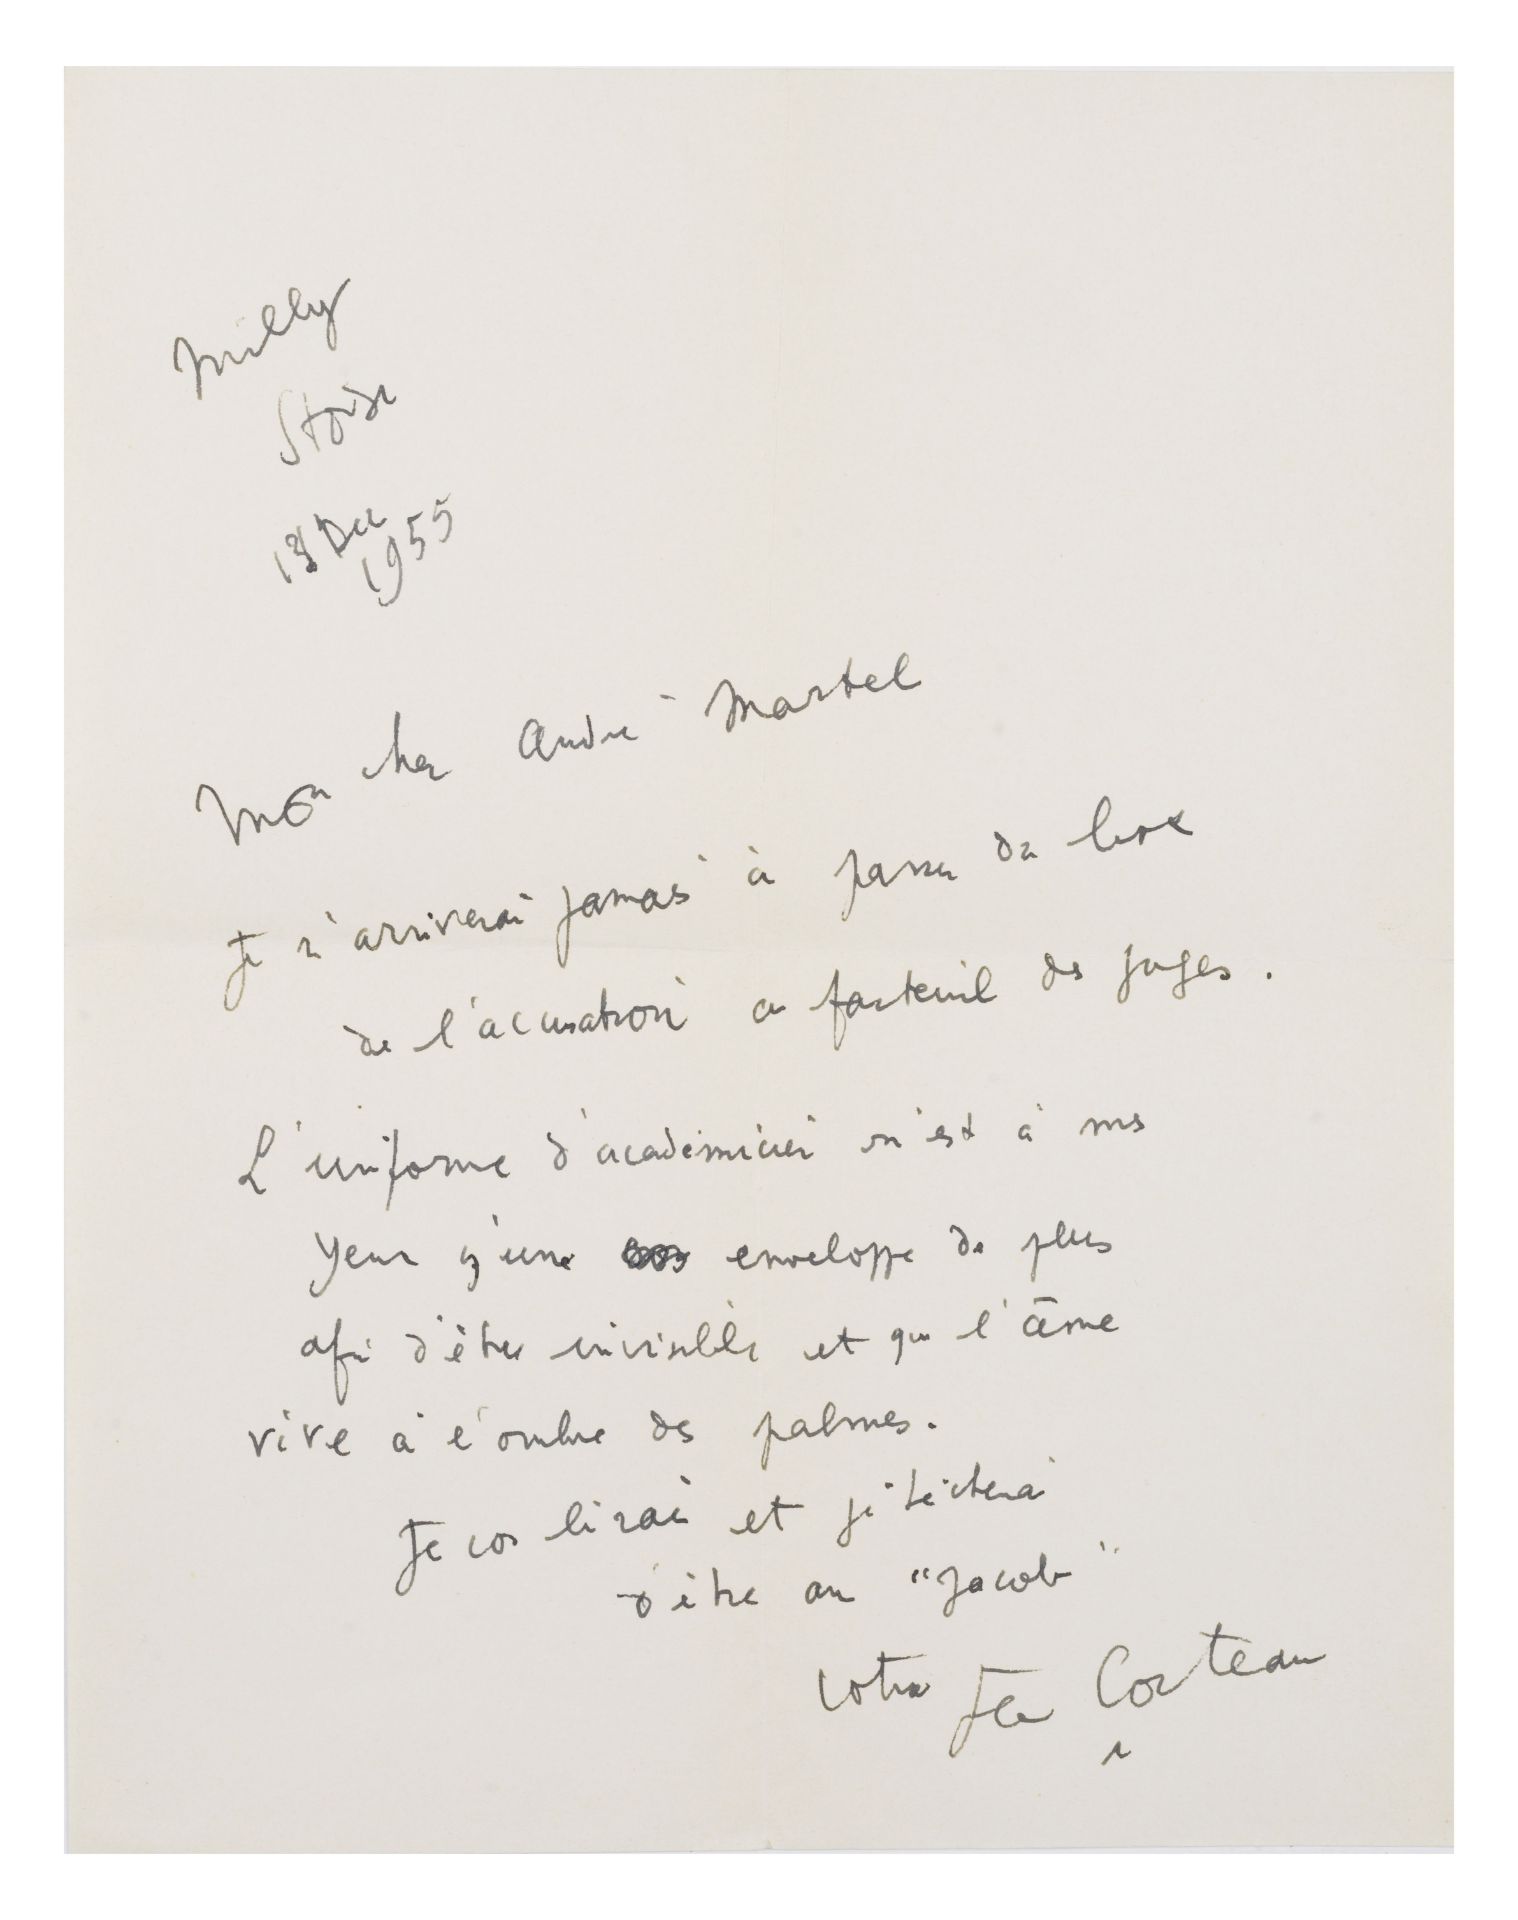 Milly
S et Oise
13 Dec
1955
Mon cher André Martel
Je n'arriverai jamais à passer du box
de l'accusation au fauteuil des juges.
L'uniforme d'académicien n'est à mes
yeux qu'une enveloppe de plus
afin d'être invisible et que l'âme
vive à l'ombre des palmes.
Je vous lirai et je tâcherai
d'être au "Jacob"
votre Jean Cocteau